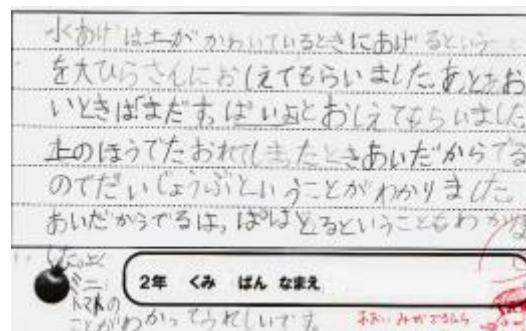 水あげは土がかわいているときにあげるということ
を大ひらさんにおしえてもらいました。あとあお
いときはまだすっぱいよとおしえてもらいました
上のほうでたおれてしまったときあいだからでる
のでだいじょうぶということがわかりました。
あいだからでるは、ぱはとるということもわかりま
した。よく
ミニ
トマトの
ことがわかってうれしいです
2年 くみ ばん なまえ
あおい みが